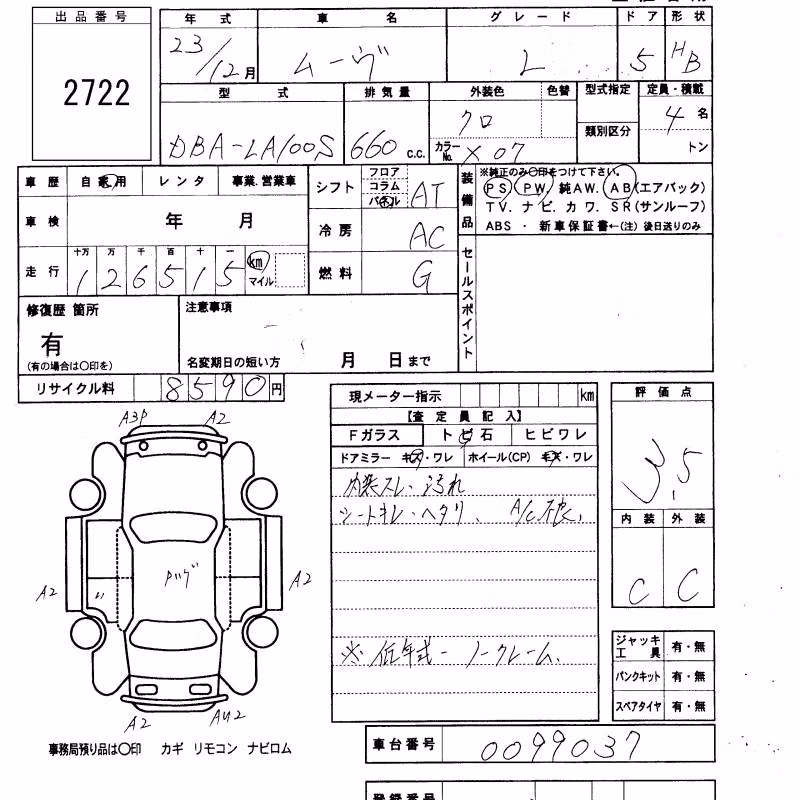 出品番号
2722
年式
23/12月
車名
ムーヴ
グレード
L
ドア
5
形状
HB
型式
DBA-LA100S
排気量
660 c.c.
外装色
クロ
色替
カラーNo.
X07
型式指定
類別区分
定員・積載
4名
トン
車歴
自家用
レンタ
事業.営業車
車検
年 月
走行
十万 万 千 百 十 一
126515
km
マイル
シフト
フロア
コラム
パネル
AT
冷房
AC
燃料
G
装備品
※純正のみ〇印をつけて下さい。
PS. PW. 純AW. AB(エアバック)
TV. ナビ. カワ. SR(サンルーフ)
ABS ・ 新車保証書←(注) 後日送りのみ
セールスポイント
修復歴 箇所
有
(有の場合は〇印を)
注意事項
名変期日の短い方
月 日まで
リサイクル料
8590円
現メーター指示
km
【査定員記入】
Fガラス
トビ石
ヒビワレ
ドアミラー キズ・ワレ
ホイール(CP) キズ・ワレ
内装スレ・汚れ
シートキレ・ヘタリ、 A/C不良、
※低年式ーノークレーム、
評価点
3.5
内装
外装
C
C
A3P
A2
A2
A2
A2
AU2
ジャッキ
工具
有・無
パンクキット
有・無
スペアタイヤ
有・無
事務局預り品は〇印 カギ リモコン ナビロム
車台番号
0099037